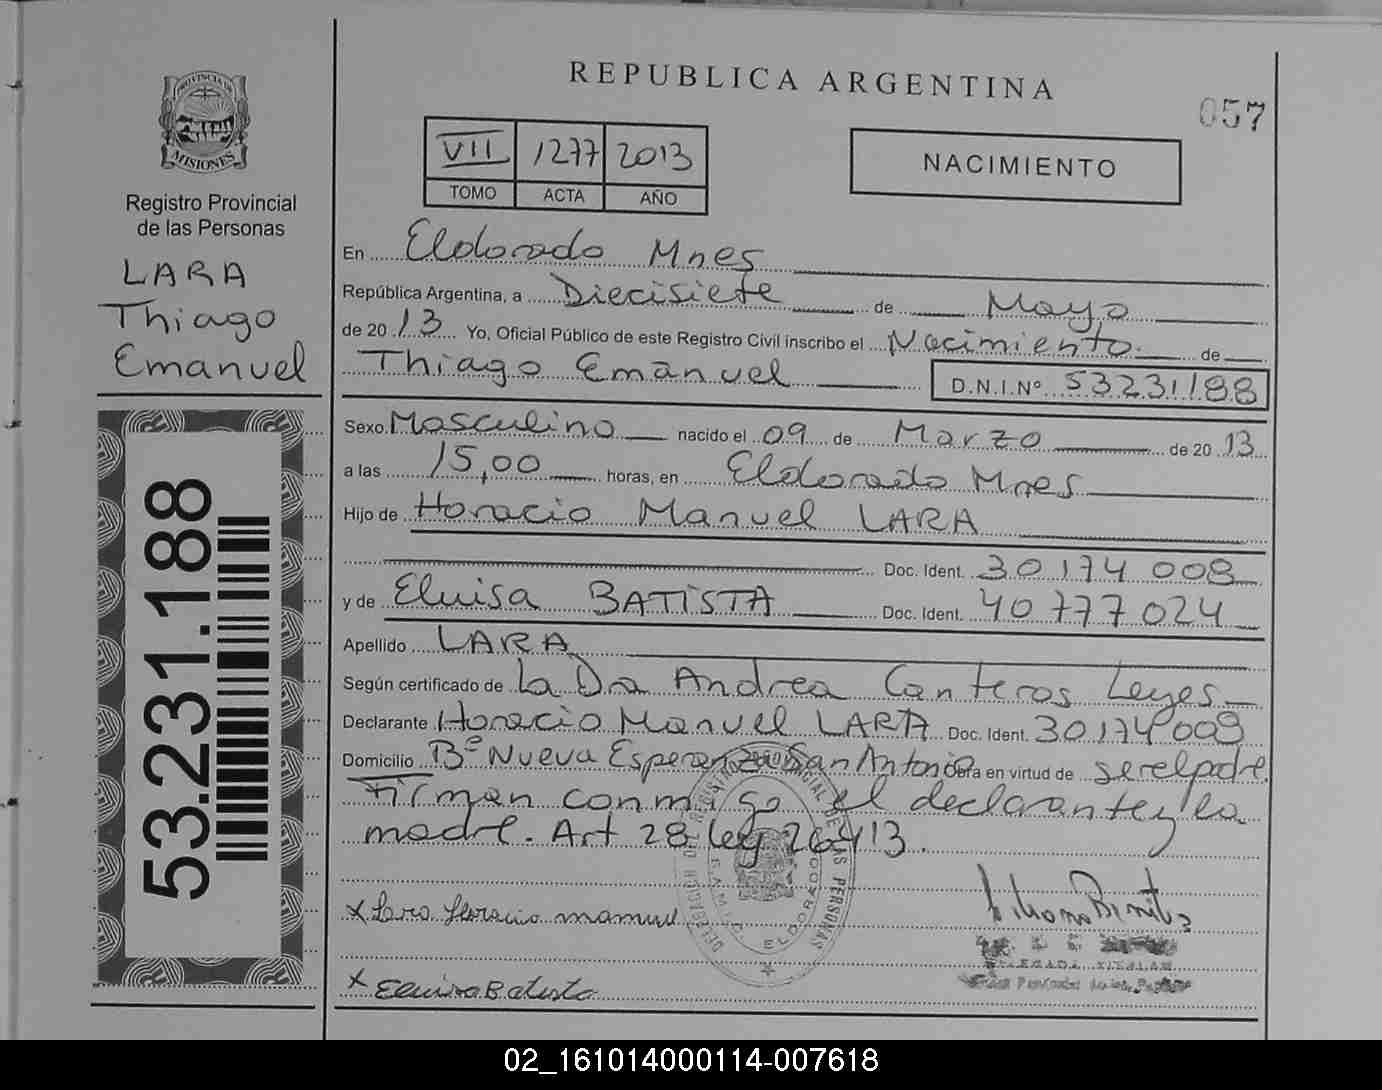 REPUBLICA ARGENTINA
057
PROVINCIA DE
MISIONES
Registro Provincial
de las Personas
LARA
Thiago
Emanuel
53.231.188
VII 1277 2013
TOMO ACTA AÑO
NACIMIENTO
En Eldorado Mnes
República Argentina, a Diecisiete de Mayo
de 20 13 Yo, Oficial Público de este Registro Civil inscribo el Nacimiento de
Thiago Emanuel D.N.I.Nº 53231188
Sexo Masculino nacido el 09 de Marzo de 20 13
a las 15,00 horas, en Eldorado Mnes
Hijo de Horacio Manuel LARA
Doc. Ident. 30174008
y de Eluisa BATISTA Doc. Ident. 40777024
Apellido LARA
Según certificado de La Dra Andrea Canteros Leyes
Declarante Horacio Manuel LARA Doc. Ident. 30174008
Domicilio Bº Nueva Esperanza San Antonio Obra en virtud de ser el padre
Firman conmigo el declarante y la
madre. Art 28 Ley 26413.
x Lara Horacio manuel
x Eluisa Batista
ELDORADO
02_161014000114-007618